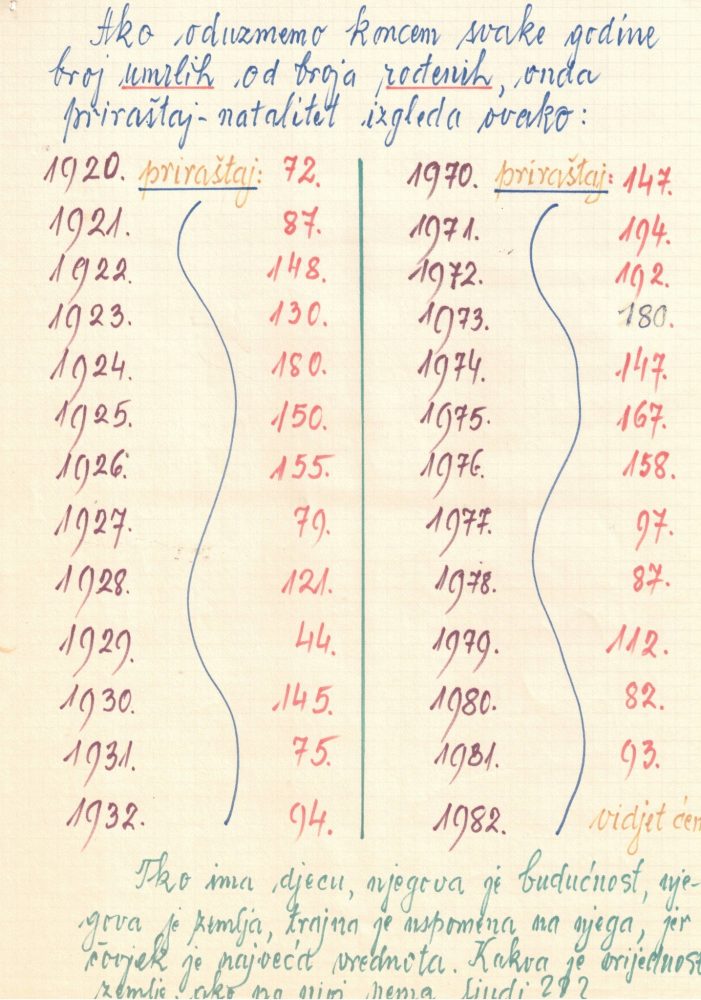 Ako oduzmemo koncem svake godine
broj umrlih od broja rođenih, onda
priraštaj-natalitet izgleda ovako:
1920. priraštaj: 72.
1921. 87.
1922. 148.
1923. 130.
1924. 180.
1925. 150.
1926. 155.
1927. 79.
1928. 121.
1929. 44.
1930. 145.
1931. 75.
1932. 94.
1970. priraštaj: 147.
1971. 194.
1972. 192.
1973. 180.
1974. 147.
1975. 167.
1976. 158.
1977. 97.
1978. 87.
1979. 112.
1980. 82.
1981. 93.
1982. vidjet ćem
Tko ima djecu, njegova je budućnost, nje-
gova je zemlja, trajna je uspomena na njega, jer
čovjek je najveća vrednota. Kakva je vrijednost
zemlje, ako na njoj nema ljudi???